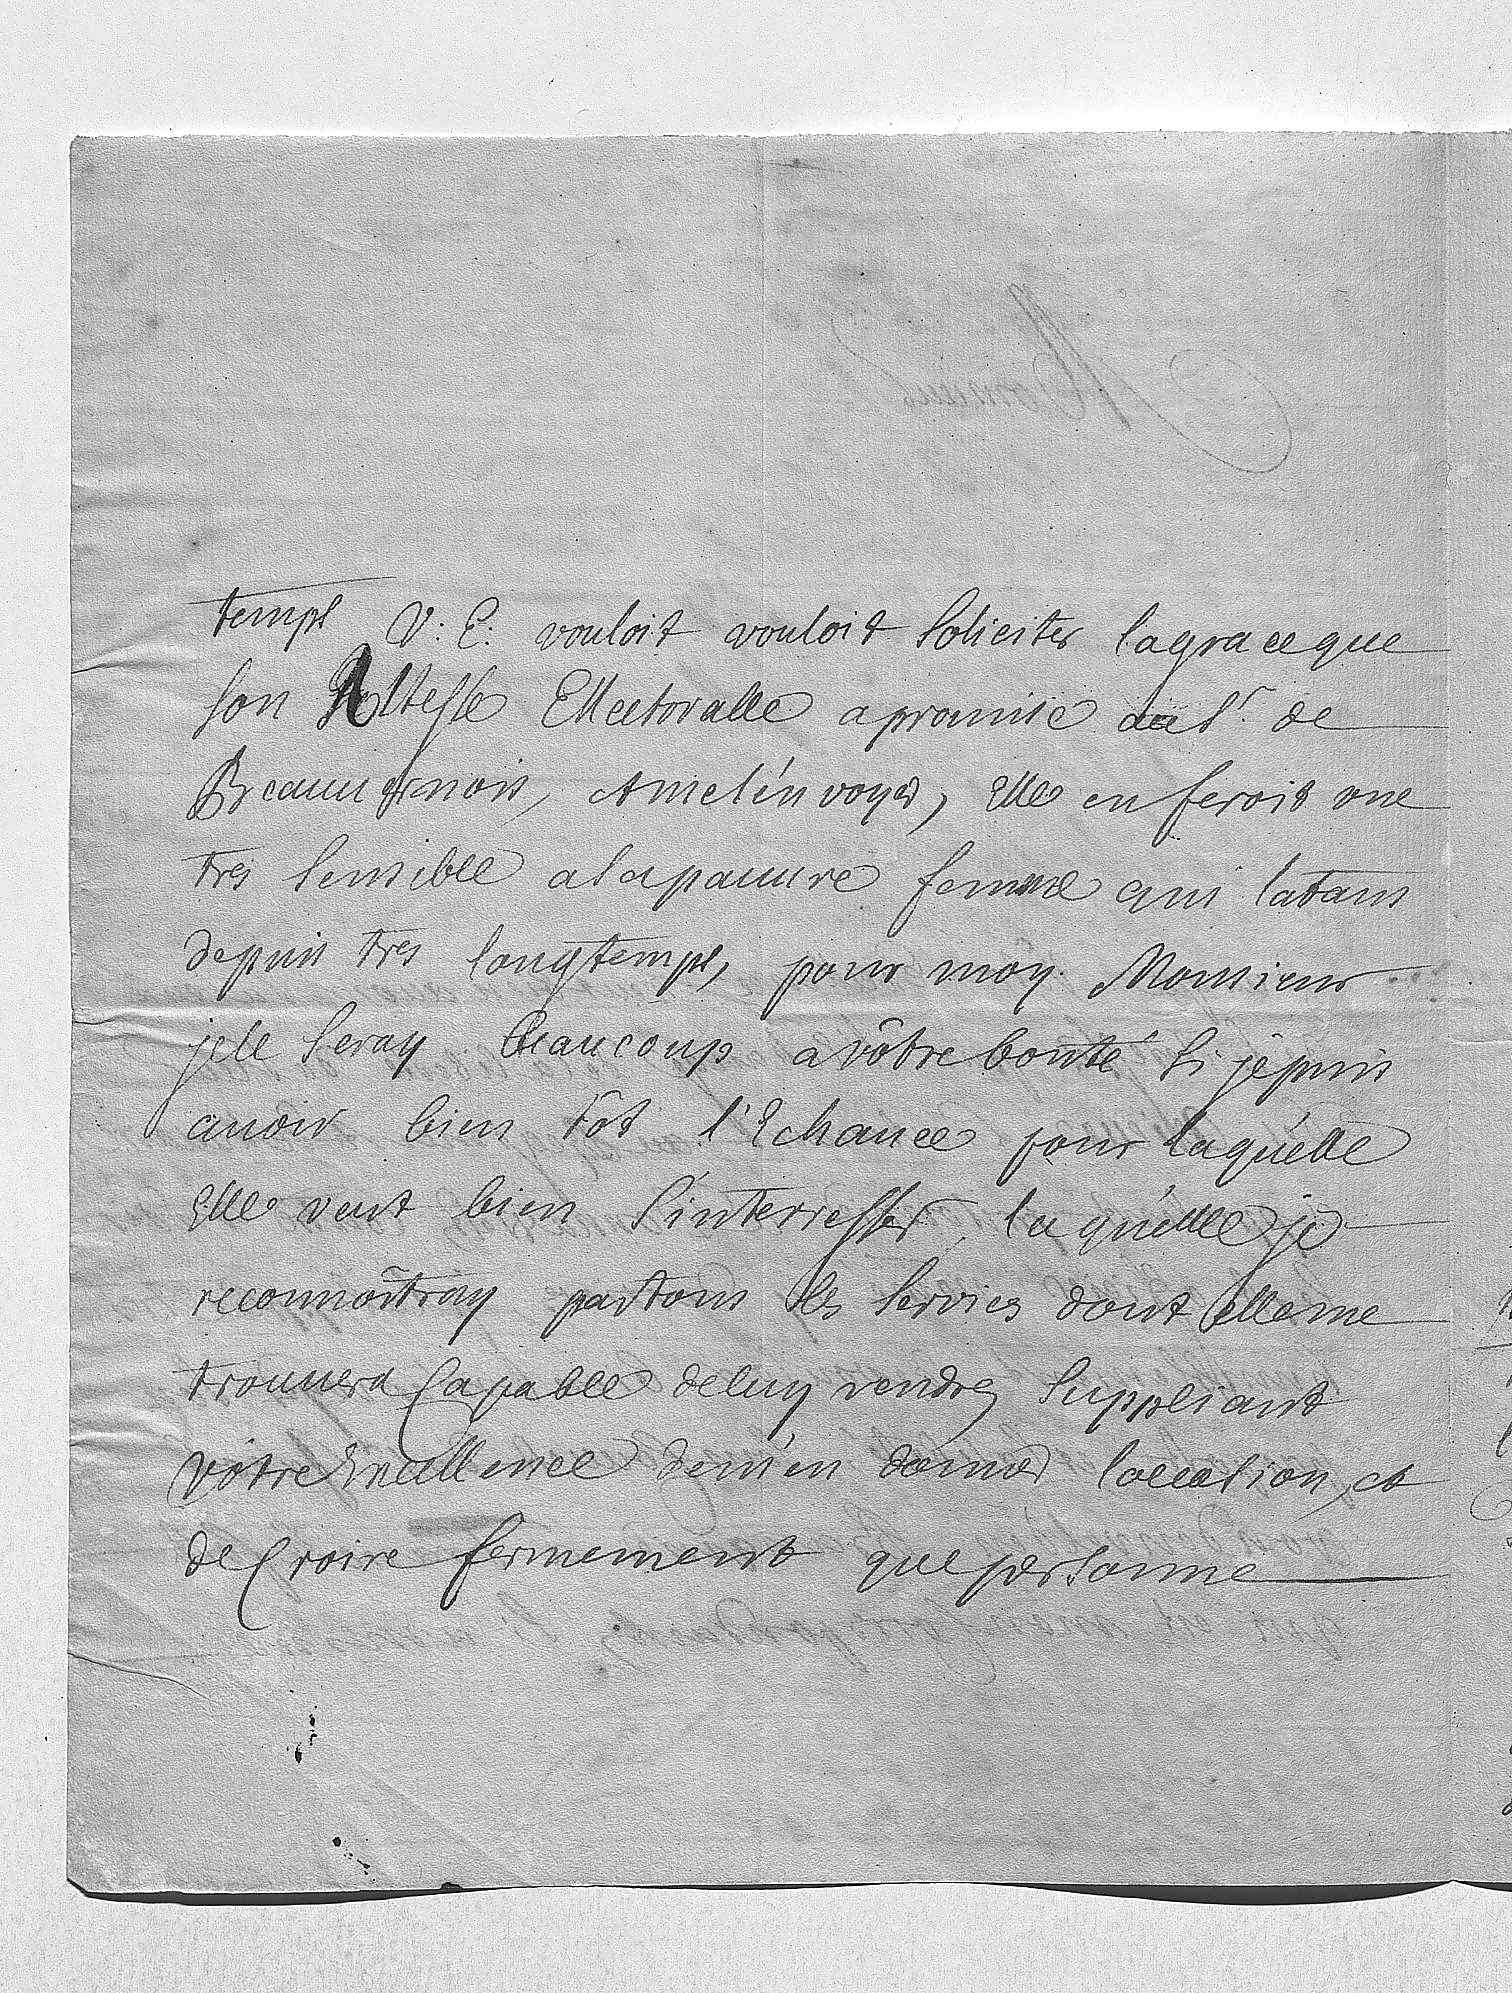 temps V: E: vouloit vouloit soliciter lagrace que
son Altesse Electoralle a promise au Sr. de
a me l'énvoyer, Elle en feroit une
tres sensible a la pauure femme qui latans
depuis tres longtemps, pour moy Monsieur
je le seray beaucoup a vôtre bonté si jê puis
auoir bien tôt l'Echance pour laquélle
Elle veut bien s'interresser, laquélle je
reconnoîtray par tous les services dont elle me
trouuera Capable de luy rendre, suppliant
vôtre Excellence de m'en donner loccation, et
de Croire fermement que personne